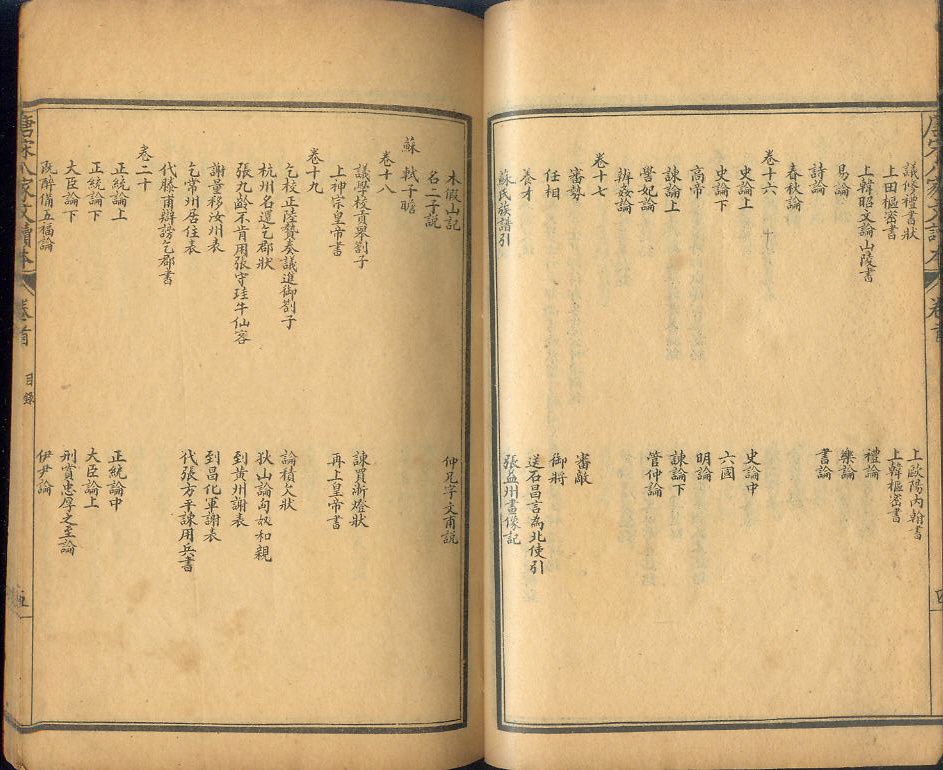 議修禮書狀 上歐陽內翰書
上田樞密書 上韓樞密書
上韓昭文論山陵書
易論 禮論
詩論 樂論
春秋論 書論
卷十六
史論上 史論中
史論下 六國
高帝 明論
諫論上 諫論下
嚳妃論 管仲論
辨姦論
卷十七
審勢 審敵
任相 御將
養才 送石昌言為北使引
蘇氏族譜引 張益州畫像記
木假山記 仲兄字文甫說
名二子說
蘇軾子瞻
卷十八
議學校貢舉劄子 諫買浙燈狀
上神宗皇帝書 再上皇帝書
卷十九
乞校正陸贄奏議進御劄子 論積欠狀
杭州名還乞郡狀 狄山論匈奴和親
張九齡不肯用張守珪牛仙客 到黃州謝表
謝量移汝州表 到昌化軍謝表
乞常州居住表 代張方平諫用兵書
代滕甫辯謗乞郡書
卷二十
正統論上 正統論中
正統論下 大臣論上
大臣論下 刑賞忠厚之至論
既醉備五福論 伊尹論
卷首
目錄
五